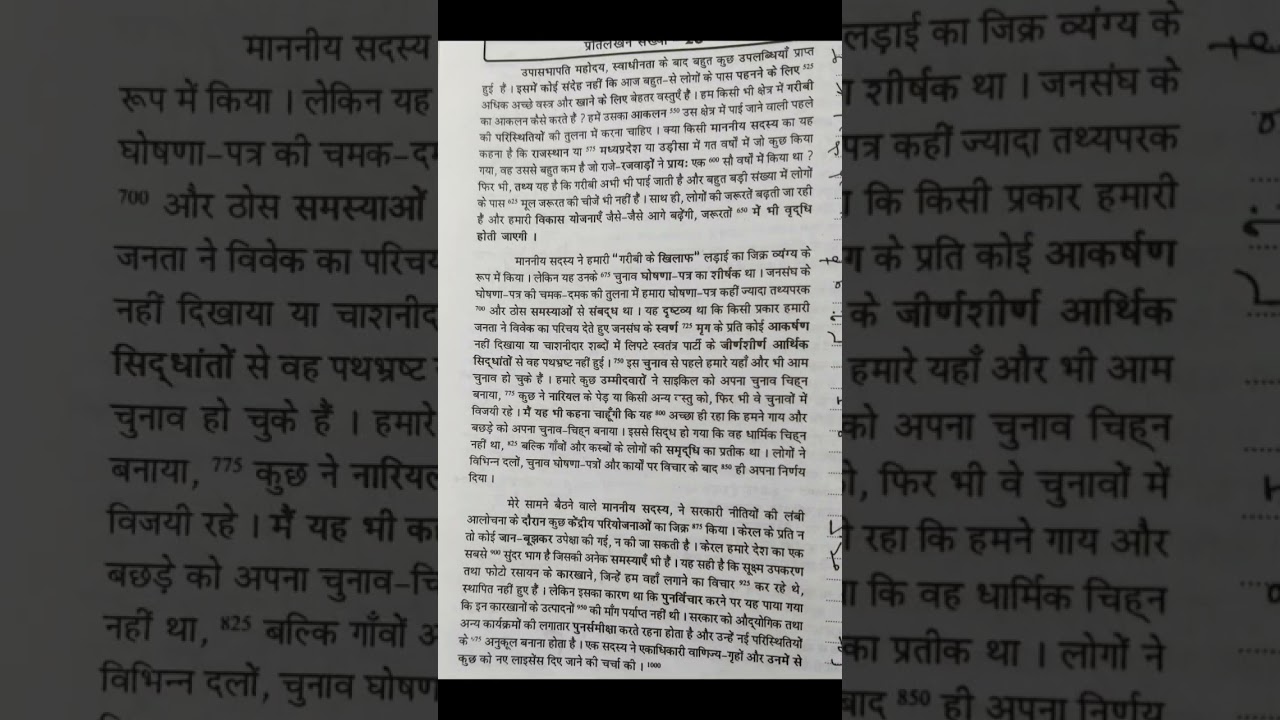 प्रतिलेखन संख्या -
उपासभापति महोदय, स्वाधीनता के बाद बहुत कुछ उपलब्धियाँ प्राप्त
हुई है । इसमें कोई संदेह नहीं कि आज बहुत-से लोगों के पास पहनने के लिए 525
अधिक अच्छे वस्त्र और खाने के लिए बेहतर वस्तुएँ है । हम किसी भी क्षेत्र में गरीबी
का आकलन कैसे करते है ? हमें उसका आकलन 550 उस क्षेत्र में पाई जाने वाली पहले
की परिस्थितियों की तुलना में करना चाहिए । क्या किसी माननीय सदस्य का यह
कहना है कि राजस्थान या 575 मध्यप्रदेश या उड़ीसा में गत वर्षों में जो कुछ किया
गया, वह उससे बहुत कम है जो राजे-रजवाड़ों ने प्रायः एक 600 सौ वर्षों में किया था ?
फिर भी, तथ्य यह है कि गरीबी अभी भी पाई जाती है और बहुत बड़ी संख्या में लोगों
के पास 625 मूल जरूरत की चीजें भी नहीं है । साथ ही, लोगों की जरूरतें बढ़ती जा रही
है और हमारी विकास योजनाएँ जैसे-जैसे आगे बढ़ेंगी, जरूरतों 650 में भी वृद्धि
होती जाएगी ।
माननीय सदस्य ने हमारी "गरीबी के खिलाफ" लड़ाई का जिक्र व्यंग्य के
रूप में किया । लेकिन यह उनके 675 चुनाव घोषणा-पत्र का शीर्षक था । जनसंघ के
घोषणा-पत्र की चमक-दमक की तुलना में हमारा घोषणा-पत्र कहीं ज्यादा तथ्यपरक
700 और ठोस समस्याओं से संबद्ध था । यह दृष्टव्य था कि किसी प्रकार हमारी
जनता ने विवेक का परिचय देते हुए जनसंघ के स्वर्ण 725 मृग के प्रति कोई आकर्षण
नहीं दिखाया या चाशनीदार शब्दों में लिपटे स्वतंत्र पार्टी के जीर्णशीर्ण आर्थिक
सिद्धांतों से वह पथभ्रष्ट नहीं हुई । 750 इस चुनाव से पहले हमारे यहाँ और भी आम
चुनाव हो चुके हैं । हमारे कुछ उम्मीदवारों ने साइकिल को अपना चुनाव चिह्न
बनाया, 775 कुछ ने नारियल के पेड़ या किसी अन्य वस्तु को, फिर भी वे चुनावों में
विजयी रहे । मैं यह भी कहना चाहूँगी कि यह 800 अच्छा ही रहा कि हमने गाय और
बछड़े को अपना चुनाव-चिह्न बनाया । इससे सिद्ध हो गया कि वह धार्मिक चिह्न
नहीं था, 825 बल्कि गाँवों और कस्बों के लोगों की समृद्धि का प्रतीक था । लोगों ने
विभिन्न दलों, चुनाव घोषणा-पत्रों और कार्यों पर विचार के बाद 850 ही अपना निर्णय
दिया ।
मेरे सामने बैठने वाले माननीय सदस्य, ने सरकारी नीतियों की लंबी
आलोचना के दौरान कुछ केंद्रीय परियोजनाओं का जिक्र 875 किया । केरल के प्रति न
तो कोई जान-बूझकर उपेक्षा की गई, न की जा सकती है । केरल हमारे देश का एक
सबसे 900 सुंदर भाग है जिसकी अनेक समस्याएँ भी है । यह सही है कि सूक्ष्म उपकरण
तथा फोटो रसायन के कारखाने, जिन्हें हम वहाँ लगाने का विचार 925 कर रहे थे,
स्थापित नहीं हुए है । लेकिन इसका कारण था कि पुनर्विचार करने पर यह पाया गया
कि इन कारखानों के उत्पादनों 950 की माँग पर्याप्त नहीं थी । सरकार को औद्योगिक तथा
अन्य कार्यक्रमों की लगातार पुनर्समीक्षा करते रहना होता है और उन्हें नई परिस्थितियों
के 975 अनुकूल बनाना होता है । एक सदस्य ने एकाधिकारी वाणिज्य-गृहों और उनमें से
कुछ को नए लाइसेंस दिए जाने की चर्चा की । 1000